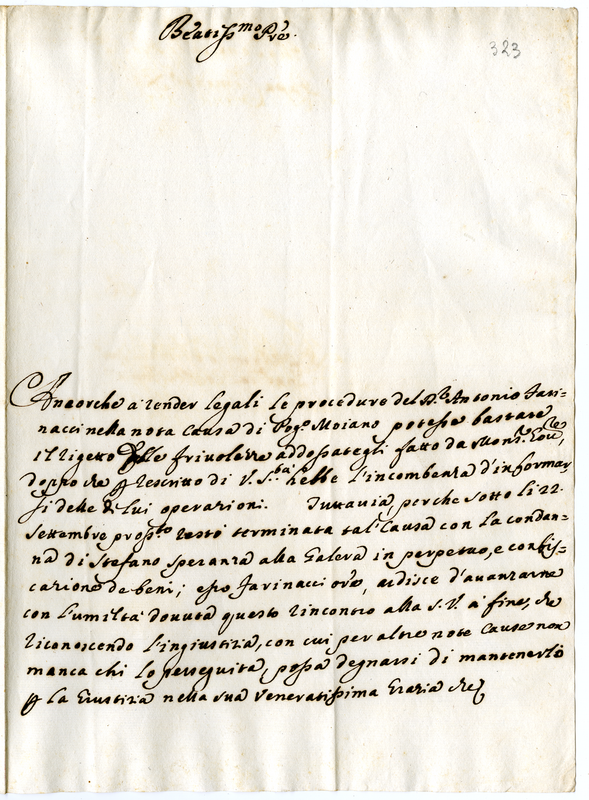 Beatiss.mo Prē.
323
Ancorche à render legali le procedure del D.r Antonio Fari=
nacci nella nota Causa di Pog.o Moiano potesse bastare
il rigetto delle frivolezze addossategli fatto da Mons.r
doppo che p rescritto di V. S.tà hebbe l'incombenza d'informar
si delle di lui operazioni. Tuttavia, perche sotto li 22.
Settembre pross.to restò terminata tal Causa con la condan=
na di Stefano Speranza alla Galera in perpetuo, e confis=
cazione de beni; esso Farinacci ore, ardisce d'avanzarne
con l'umiltà dovuta questo rincontro alla S. V. à fine, che
riconoscendo l'ingiustizia, con cui per altre note Cause non
manca chi lo perseguita, possa degnarsi di mantenerlo
p la Giustizia nella sua Veneratissima Grazia che